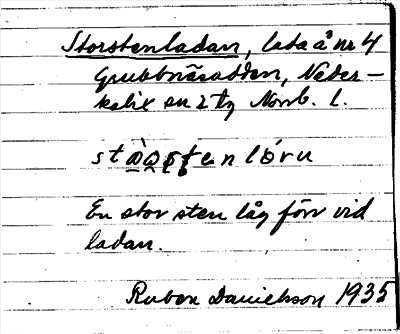 Storstenladan, lada å nr 4
Grubbnäsudden, Neder-
kalix sn 2 tg Norrb. l.
stàosten lóru
En stor sten låg förr vid
ladan.
Ruben Danielsson 1935